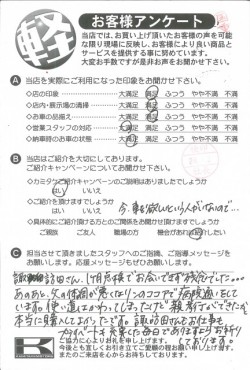 軽
お客様アンケート
当店では、お買い上げ頂いたお客様の声を可能
な限り現場に反映し、お客様により良い商品と
サービスを提供する事に努めています。
大変お手数ですが是非お声をお聞かせ下さい。
A 当店を実際にご利用になった印象をお聞かせ下さい。
・店の印象 大満足 満足 ふつう やや不満 不満
・店内・展示場の清掃 大満足 満足 ふつう やや不満 不満
・お車の品揃え 大満足 満足 ふつう やや不満 不満
・営業スタッフの対応 大満足 満足 ふつう やや不満 不満
・納車時のお車の状態 大満足 満足 ふつう やや不満 不満
B 当店はご紹介を大切にしております。
ご紹介キャンペーンについてお聞かせ下さい。
・カミタケご紹介キャンペーンのご説明はありましたでしょうか
はい いいえ
・ご紹介を頂けますでしょうか
はい いいえ 今、車を欲しいという人がいないので…
・具体的にご紹介頂けるかたとのご関係をお聞かせ頂けますでしょうか
ご親族 ご友人 職場の方 機会があれば
C 担当させて頂きましたスタッフへのご指摘、ご指導メッセージを
お願いします。応援メッセージもぜひお願いします。
諏訪田さん、1ヶ月点検でお会いできず残念でした…。
あのあと、父の体調が悪くなりココアで病院通いをして
います。
本当に購入してよかったです。諏訪田さんもお仕事も
プライベートも充実した毎日でありますようお祈り
しております。
ご協力に心よりお礼を申し上げます。
今後とも宜しくお引き立てご愛顧の程お願い申し上げます。
またのご来店を心からお待ちしております。